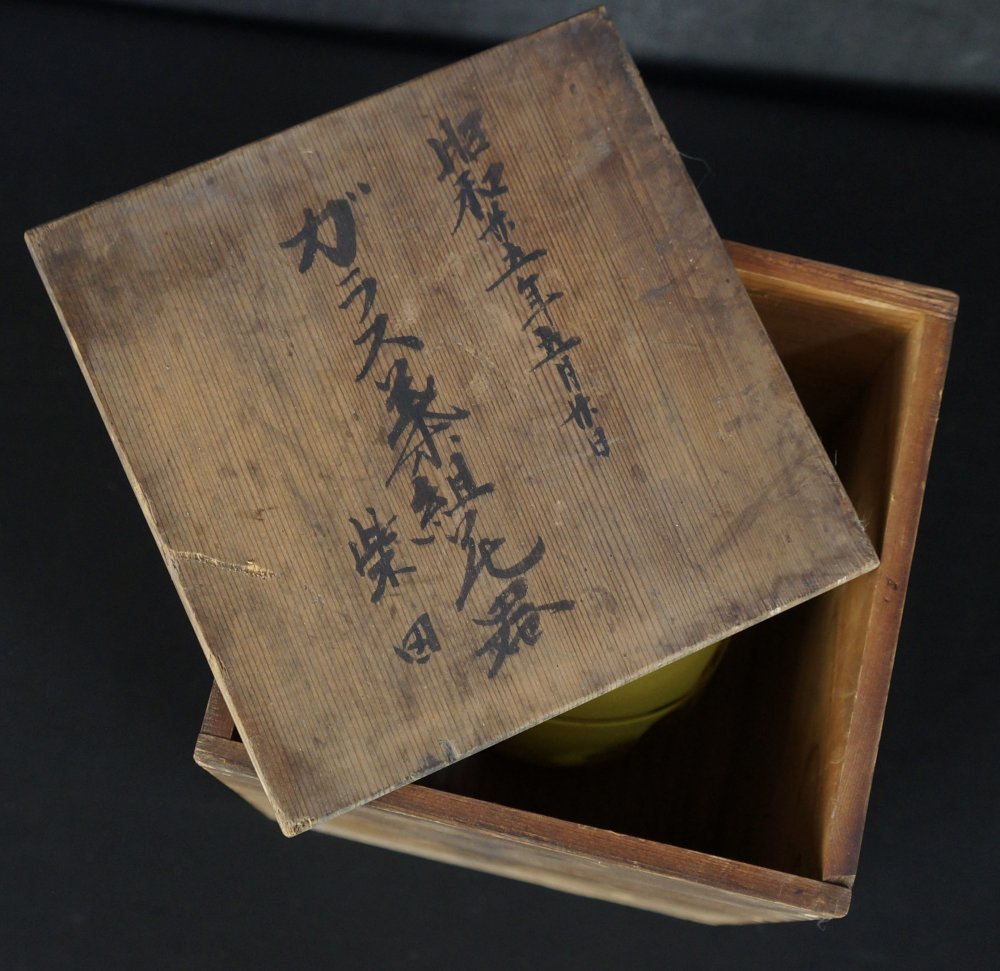 昭和廿五年五月廿日
ガラス菓組花器
柴田